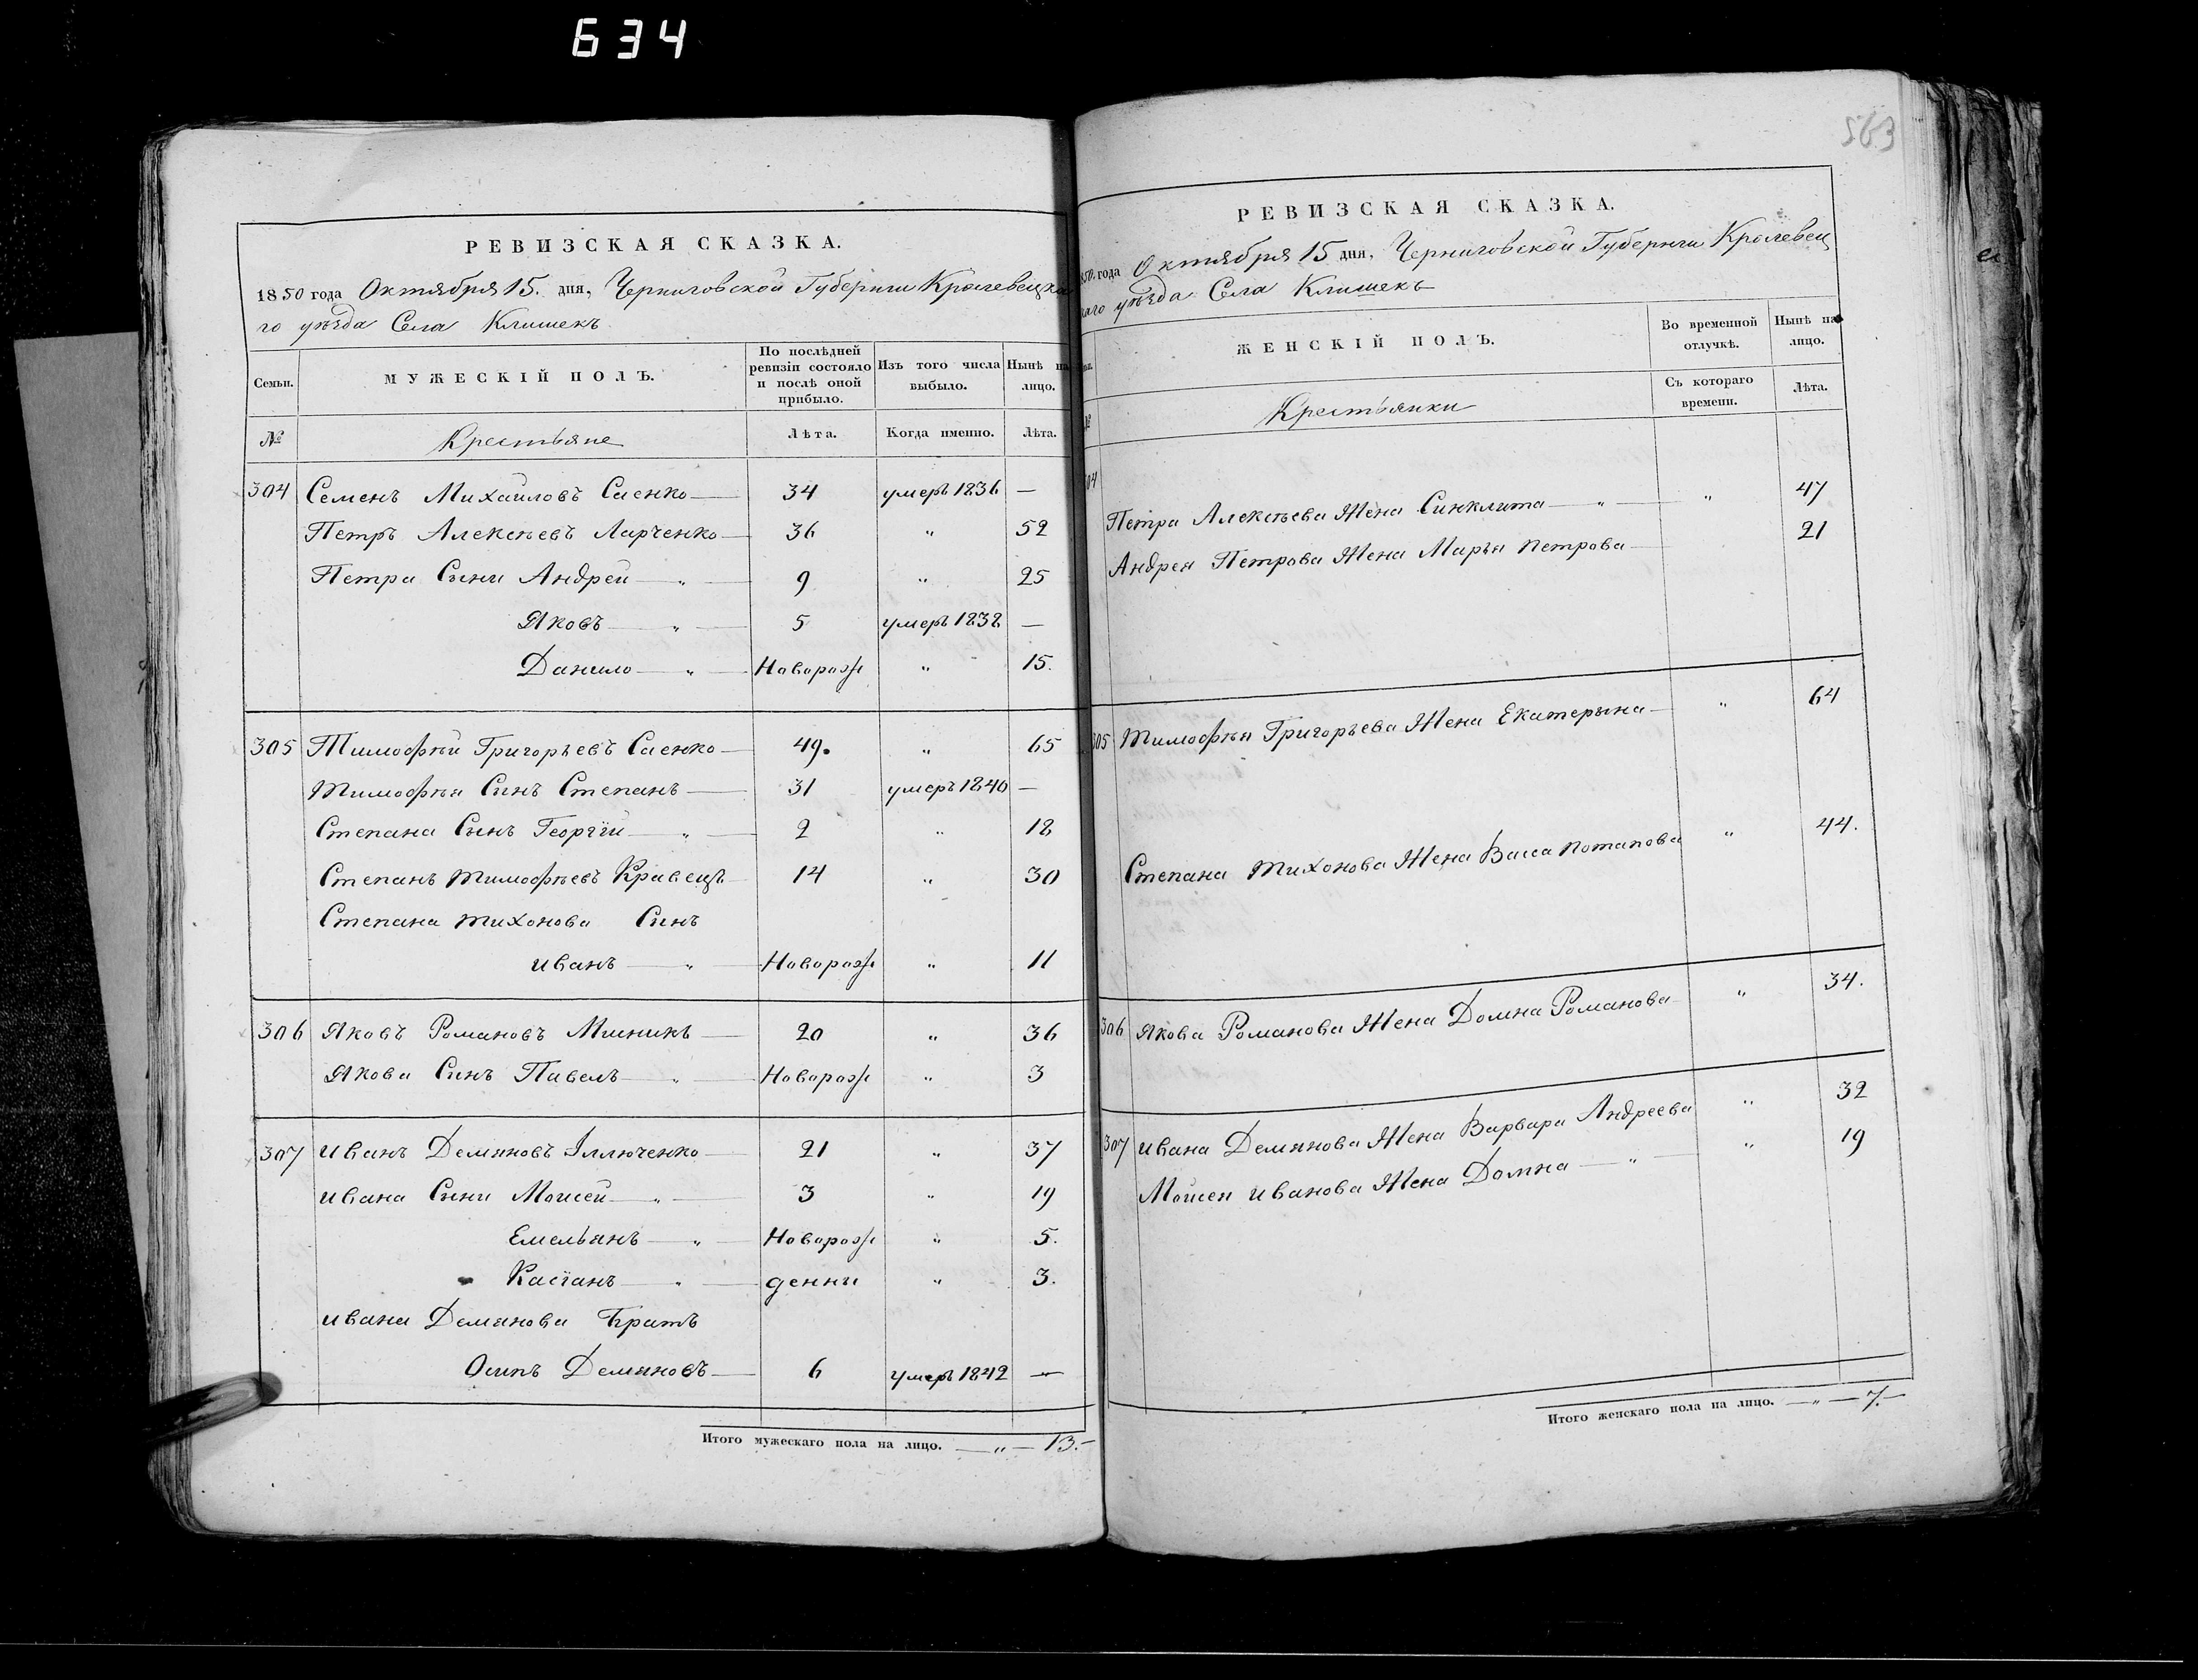 634
РЕВИЗСКАЯ СКАЗКА.
1850 года Октября 15. дня, Черниговской Губернии Кролевецка
го уѣзда Села Клишекъ
Семьи.
МУЖЕСКІЙ ПОЛЪ.
По послѣдней ревизіи состояло и послѣ оной прибыло.
Изъ того числа выбыло.
Нынѣ на лицо.
№
Крестьяне
Лѣта.
Когда именно.
Лѣта.
304 Семенъ Михайловъ Саенко — 34 умеръ 1836 —
Петръ Алексѣевъ Ларченко — 36 „ 52
Петра Сыни Андрей — „ — 9 „ 25
Яковъ — „ — 5 умеръ 1838 —
Данило — „ — Таворож „ 15.
305 Тимофѣй Григорьевъ Саенко — 49. „ 65
Тимофѣя Сынъ Степанъ — 31 умеръ 1840 —
Степана Сынъ Георгій — „ — 2 „ 18
Степанъ Тимофѣевъ Кравецъ — 14 „ 30
Степана Тихонова Сынъ
Иванъ — „ — Новорож „ 11
306 Яковъ Романовъ Миникъ — 20 „ 36
Якова Сынъ Павелъ — „ — Новорож „ 3
307 Иванъ Демяновъ Іллюченко — 21 „ 37
Ивана Сыни Моисей — „ — 3 „ 19
Емельянъ — „ — Новорож „ 5.
Касіанъ — „ — денни „ 3.
Ивана Демянова Братъ
Осипъ Демяновъ — 6 умеръ 1842 —
Итого мужескаго пола на лицо. — „ — 13. —
563
РЕВИЗСКАЯ СКАЗКА.
850. года Октября 15 дня, Черниговской Губернии Кролевец
каго уѣзда Села Клишекъ
ЖЕНСКІЙ ПОЛЪ.
Во временной отлучкѣ.
Нынѣ на лицо.
№
Крестьянки
Съ котораго времени.
Лѣта.
04
Петра Алексѣева Жена Синклита — „ — „ 47
Андрея Петрова Жена Марья Петрова — 21
305 Тимофѣя Григорьева Жена Екатерына — „ 64
Степана Тихонова Жена Васса Потапова „ 44.
306 Якова Романова Жена Домна Романова — „ 34.
307 Ивана Демянова Жена Варвара Андреева „ 32
Моисея Иванова Жена Домна — „ — „ 19
Итого женскаго пола на лицо. — „ — 7. —